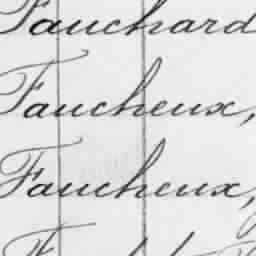 Fauchard
Faucheux,
Faucheux,